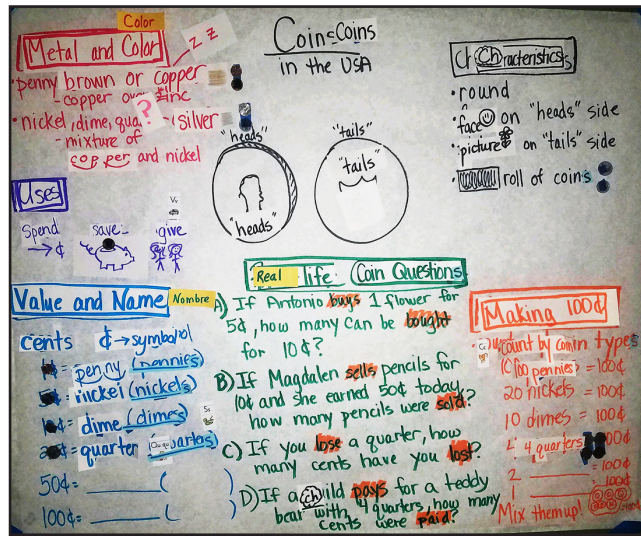 Coin=Coins
in the USA
Color
Metal and Color
zz
• penny brown or copper
- copper over zinc
?
• nickel, dime, silver
- mixture of
copper and nickel
"heads"
"heads"
"tails"
"tails"
Ch Characteristics
• round
• face on "heads" side
• picture on "tails" side
• roll of coins
Uses
Spend
→¢
save
give
Value and Name Nombre
cents ¢→symbol
= penny (pennies)
= nickel (nickels)
= dime (dimes)
= quarter (quarters)
50¢= ______ ( )
100¢= ______ ( )
Real life: Coin Questions
A) If Antonio buys 1 flower for
5¢, how many can be bought
for 10¢?
B) If Magdalen sells pencils for
10¢ and she earned 50¢ today,
how many pencils were sold?
C) If you lose a quarter, how
many cents have you lost?
D) If a child pays for a teddy
bear with 4 quarters, how many
cents were paid?
Making 100¢
count by coin types
100 pennies = 100¢
20 nickels = 100¢
10 dimes = 100¢
4 quarters
2 ______ = 100¢
1 ______ = 100¢
Mix them up!